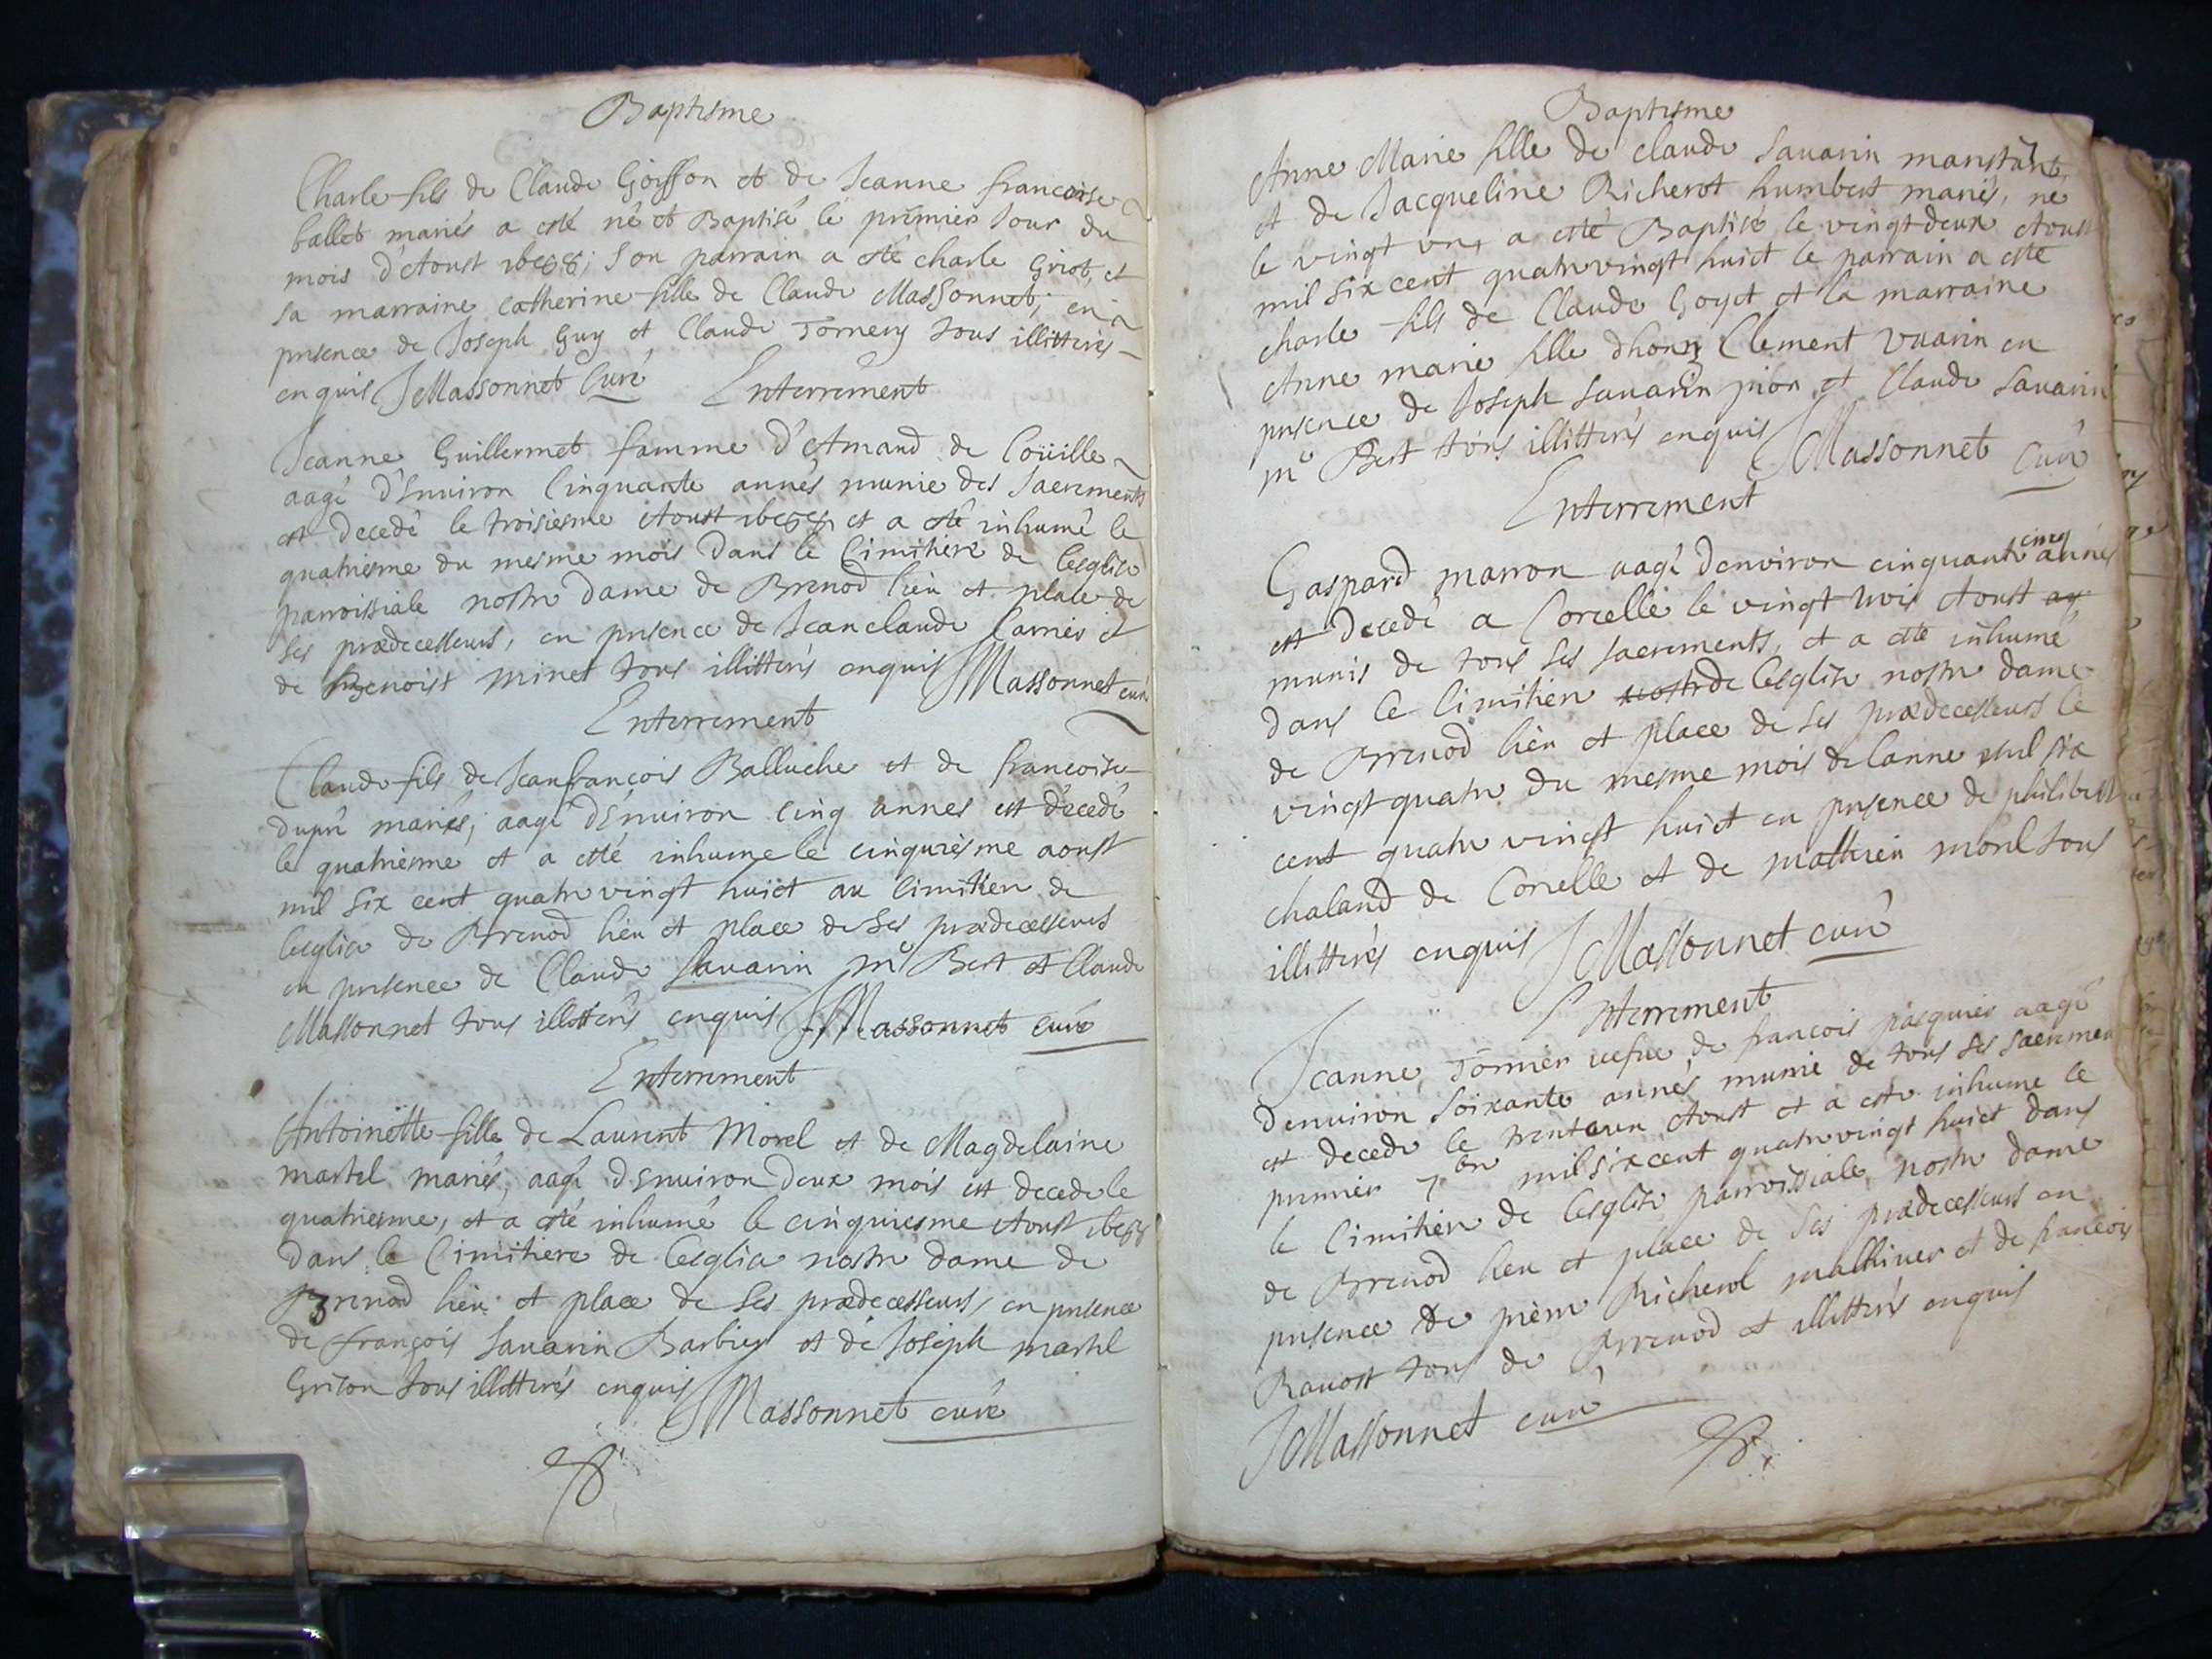 Baptisme
Charle fils de Claude Goisson et de Jeanne francoise
ballet mariés a esté né et Baptisé le premier Jour du
mois d'Aoust 1688; Son parrain a esté charle Griot, et
sa marraine catherine fille de Claude Massonnet; en
presence de Joseph Guy et Claude Tornery tous illitterés
enquis JMassonnet Curé
Enterrement
Jeanne Guillermet famme d'Amand de Coüille
aagé d'Environ Cinquante annés munie des Sacrements
est decedé le troisiesme Aoust 1688 et a esté inhumé le
quatriesme du mesme mois dans le Cimitiere de lesglise
parroissiale nostre dame de Brenod lieu et place de
ses prædecesseurs, en presence de Jeanclaude Carrier et
de Benoist minet tous illitterés enquis JMassonnet curé
Enterrement
Claude fils de Jeanfrançois Balluche et de francoise
dupré mariés; aagé d'Environ Cinq annes est decedé
le quatriesme et a esté inhumé le cinquiesme aoust
mil six cent quatre vingt huict au Cimitiere de
lesglise de Brenod lieu et place de ses prædecesseurs
en presence de Claude Sauarin me Bert et Claude
Massonnet tous illitterés enquis JMassonnet curé
Enterrement
Antoinette fille de Laurent Morel et de Magdelaine
martel mariés, aagé d'Enuiron deux mois est decedé le
quatriesme, et a esté inhumé le cinquiesme Aoust 1688
dans le Cimitiere de lesglise nostre dame de
Brenod lieu et place de ses prædecesseurs, en presence
de françois Sauarin Barbier et de Joseph martel
Grison tous illitterés enquis
JMassonnet curé
Baptisme
Anne Marie fille de claude Sauarin
et de Jacqueline Richerot humbert mariés, né
le vingt un, a esté Baptisé le vingt deux Aoust
mil six cent quatre vingt huict le parrain a esté
charle fils de Claude Goyet et la marraine
Anne marie fille d'hon Clement Vuarin en
presence de Joseph Sauarin pion et Claude Sauarin
me Bert tous illitterés enquis JMassonnet Curé
Enterrement
Gaspard marron aagé denviron cinquante cinq annés
est decedé a Corcelle le vingt trois Aoust
munis de tous ses sacrements, et a esté inhumé
dans le Cimitiere nostre de lesglise nostre dame
de Brenod lieu et place de ses prædecesseurs le
vingt quatre du mesme mois de lanne mil six
cent quatre vingt huict en presence de philibert
chaland de Corcelle et de mathieu morel tous
illitterés enquis JMassonnet curé
Enterrement
Jeanne Tornier uefue de francois pasquier aagé
denuiron soixante annés munie de tous ses sacremen
est decedé le trente un Aoust et a esté inhumé le
premier 7bre mil six cent quatre vingt huict dans
le Cimitiere de lesglise parroissiale nostre dame
de Brenod lieu et place de ses prædecesseurs en
presence de pierre Richerot et de francois
Rauost tous de Brenod et illitterés enquis
JMassonnet curé